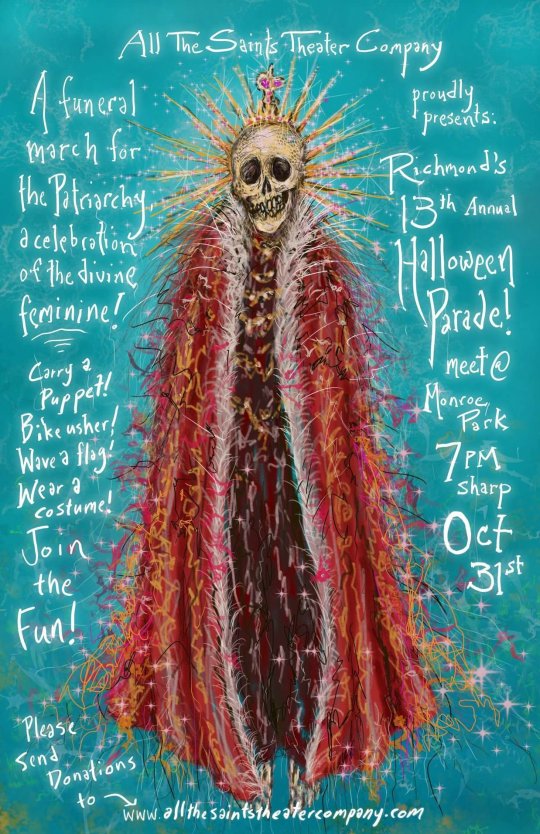 All The Saints Theater Company
A funeral
march for
the Patriarchy,
a celebration
of the divine
feminine!
Carry a
Puppet!
Bike usher!
Wave a flag!
Wear a
costume!
Join
the
Fun!
proudly
presents:
Richmond's
13th Annual
Halloween
Parade!
meet @
Monroe
Park
7PM
sharp
Oct
31st
Please
Send
Donations
to
www.allthesaintstheatercompany.com